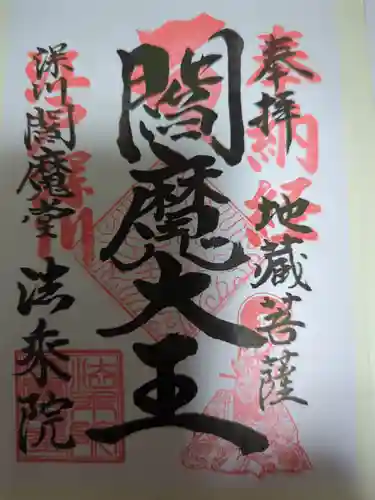 奉拝
奉納経
地蔵菩薩
閻魔大王
深川閻魔堂
法乗院